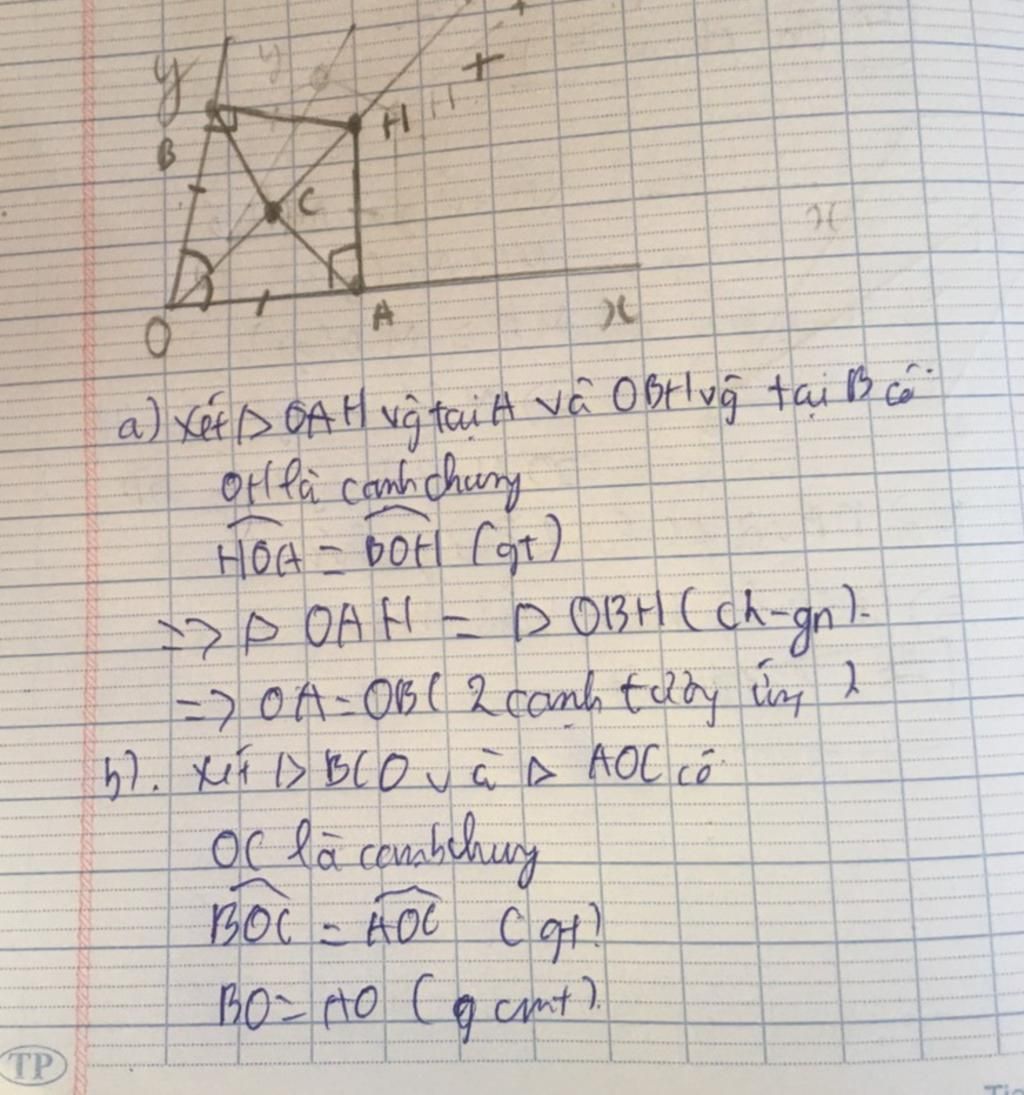 y
y
B
H
H
C
x
O
A
x
a) Xét △ OAH vg̃ tại A và OBH vg̃ tại B có:
OH là cạnh chung
HOA = BOH (gt)
=> △ OAH = △ OBH (ch-gn).
=> OA = OB ( 2 cạnh tương ứng )
b). Xét △ BCO và △ AOC có:
OC là cạnh chung
BOC = AOC (gt)
BO = AO ( cmt).
TP